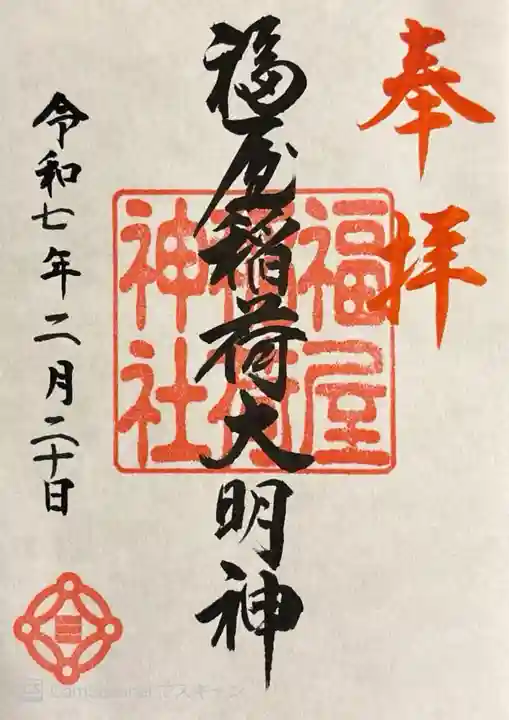 奉拝
福屋稲荷大明神
福屋
稲荷
神社
令和七年二月二十日
三
CamScanner でスキャン